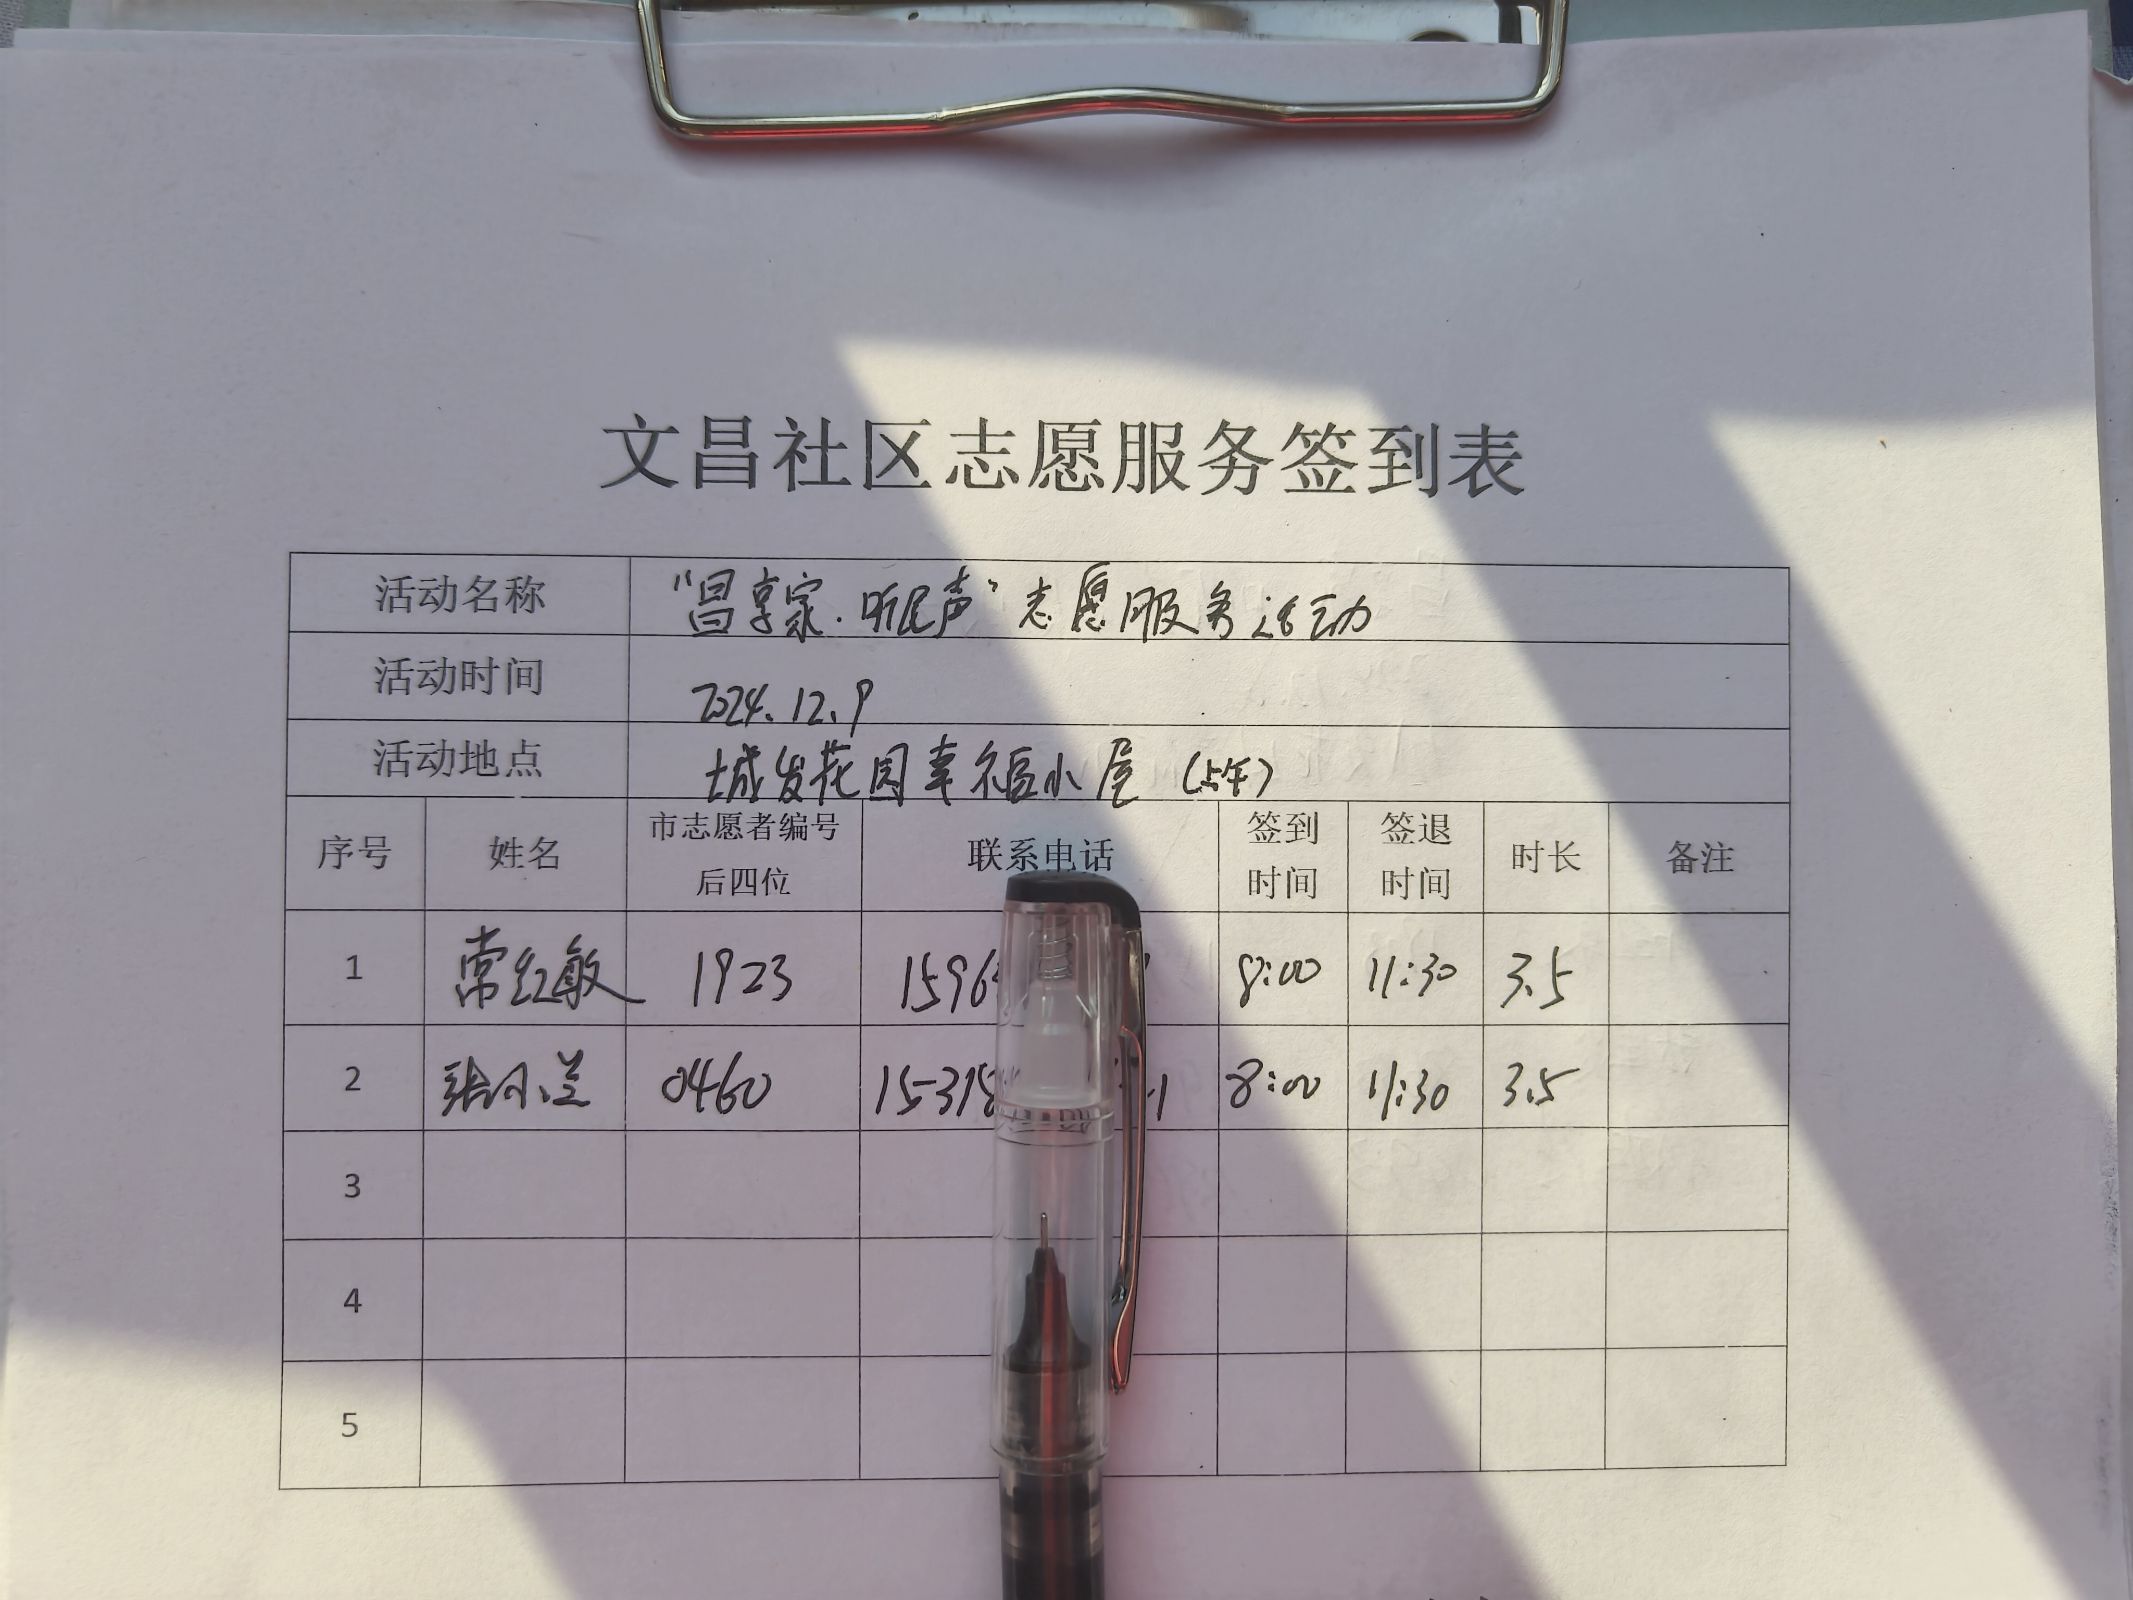 文昌社区志愿服务签到表
活动名称 “昌享家·听民声”志愿服务活动
活动时间 2024.12.9
活动地点 城发花园幸福小屋(上午)
序号 姓名 市志愿者编号后四位 联系电话 签到时间 签退时间 时长 备注
1 常红敏 1923 1596 8:00 11:30 3.5
2 张小兰 0460 15318 1 8:00 11:30 3.5
3
4
5